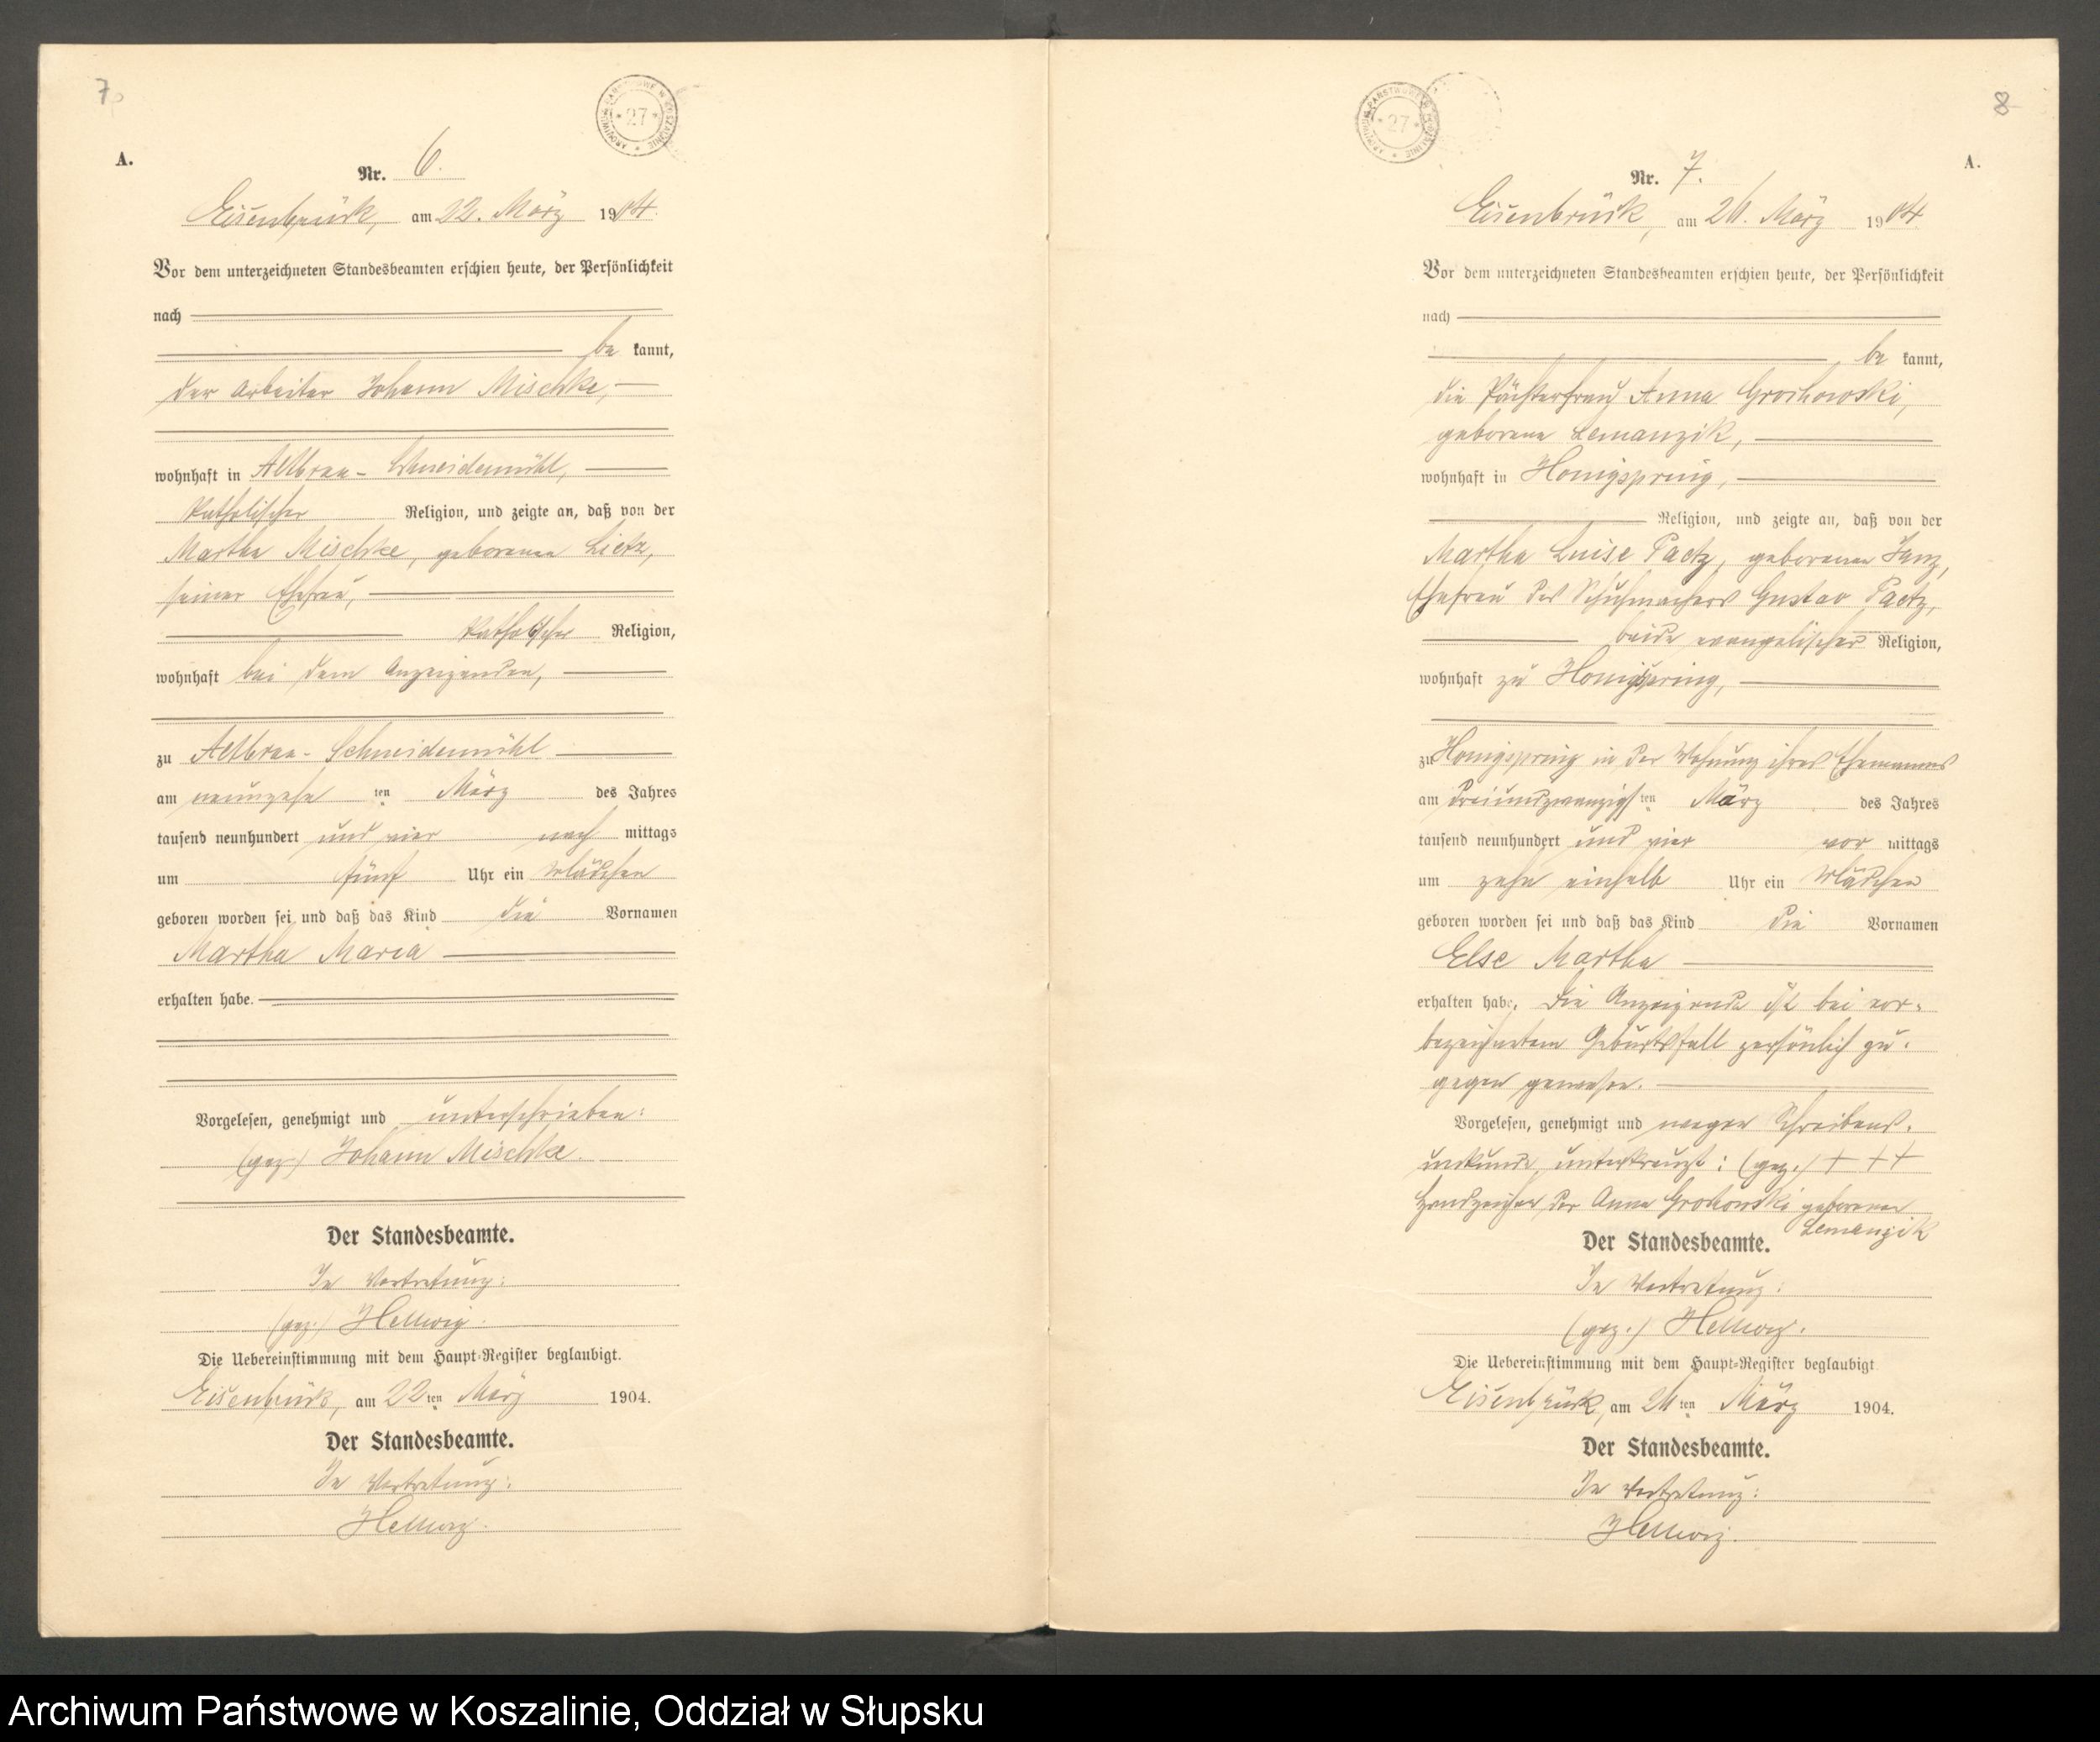 7
A.
Nr. 6.
Eisenbrück, am 22. März 1904.
Vor dem unterzeichneten Standesbeamten erschien heute, der Persönlichkeit
nach
be kannt,
der Arbeiter Johann Mischke,
wohnhaft in Altbraa-Schneidemühl,
katholischer Religion, und zeigte an, daß von der
Martha Mischke, geborenen Lietz,
seiner Ehefrau,
katholischer Religion,
wohnhaft bei dem Anzeigenden,
zu Altbraa-Schneidemühl
am neunzehn ten März des Jahres
tausend neunhundert und vier nach mittags
um fünf Uhr ein Mädchen
geboren worden sei und daß das Kind die Vornamen
Martha Maria
erhalten habe.
Vorgelesen, genehmigt und unterschrieben:
(gez.) Johann Mischke.
Der Standesbeamte.
In Vertretung:
(gez.) Hellwig.
Die Uebereinstimmung mit dem Haupt-Register beglaubigt.
Eisenbrück, am 22 ten März 1904.
Der Standesbeamte.
In Vertretung:
Hellwig.
ARCHIWUM PAŃSTWOWE W KOSZALINIE
* 27 *
8
A.
Nr. 7.
Eisenbrück, am 26. März 1904.
Vor dem unterzeichneten Standesbeamten erschien heute, der Persönlichkeit
nach
be kannt,
die Pächterfrau Anna Grochowski,
geborene Lemanzik,
wohnhaft in Honigspring,
Religion, und zeigte an, daß von der
Martha Luise Paetz, geborenen Janz,
Ehefrau des Schuhmachers Gustav Paetz,
beide evangelischer Religion,
wohnhaft zu Honigspring,
zu Honigspring in der Wohnung ihres Ehemannes
am dreiundzwanzigs ten März des Jahres
tausend neunhundert und vier vor mittags
um zehn einhalb Uhr ein Mädchen
geboren worden sei und daß das Kind die Vornamen
Else Martha
erhalten habe. Die Anzeigende ist bei vor-
bezeichnetem Geburtsfall persönlich zu-
gegen gewesen.
Vorgelesen, genehmigt und wegen Schreibens-
unkunde unterkreuzt: (gez.) + + +
Handzeichen der Anna Grochowski geborenen
Lemanzik
Der Standesbeamte.
In Vertretung:
(gez.) Hellwig.
Die Uebereinstimmung mit dem Haupt-Register beglaubigt
Eisenbrück, am 26 ten März 1904.
Der Standesbeamte.
In Vertretung:
Hellwig.
ARCHIWUM PAŃSTWOWE W KOSZALINIE
* 27 *
Archiwum Państwowe w Koszalinie, Oddział w Słupsku